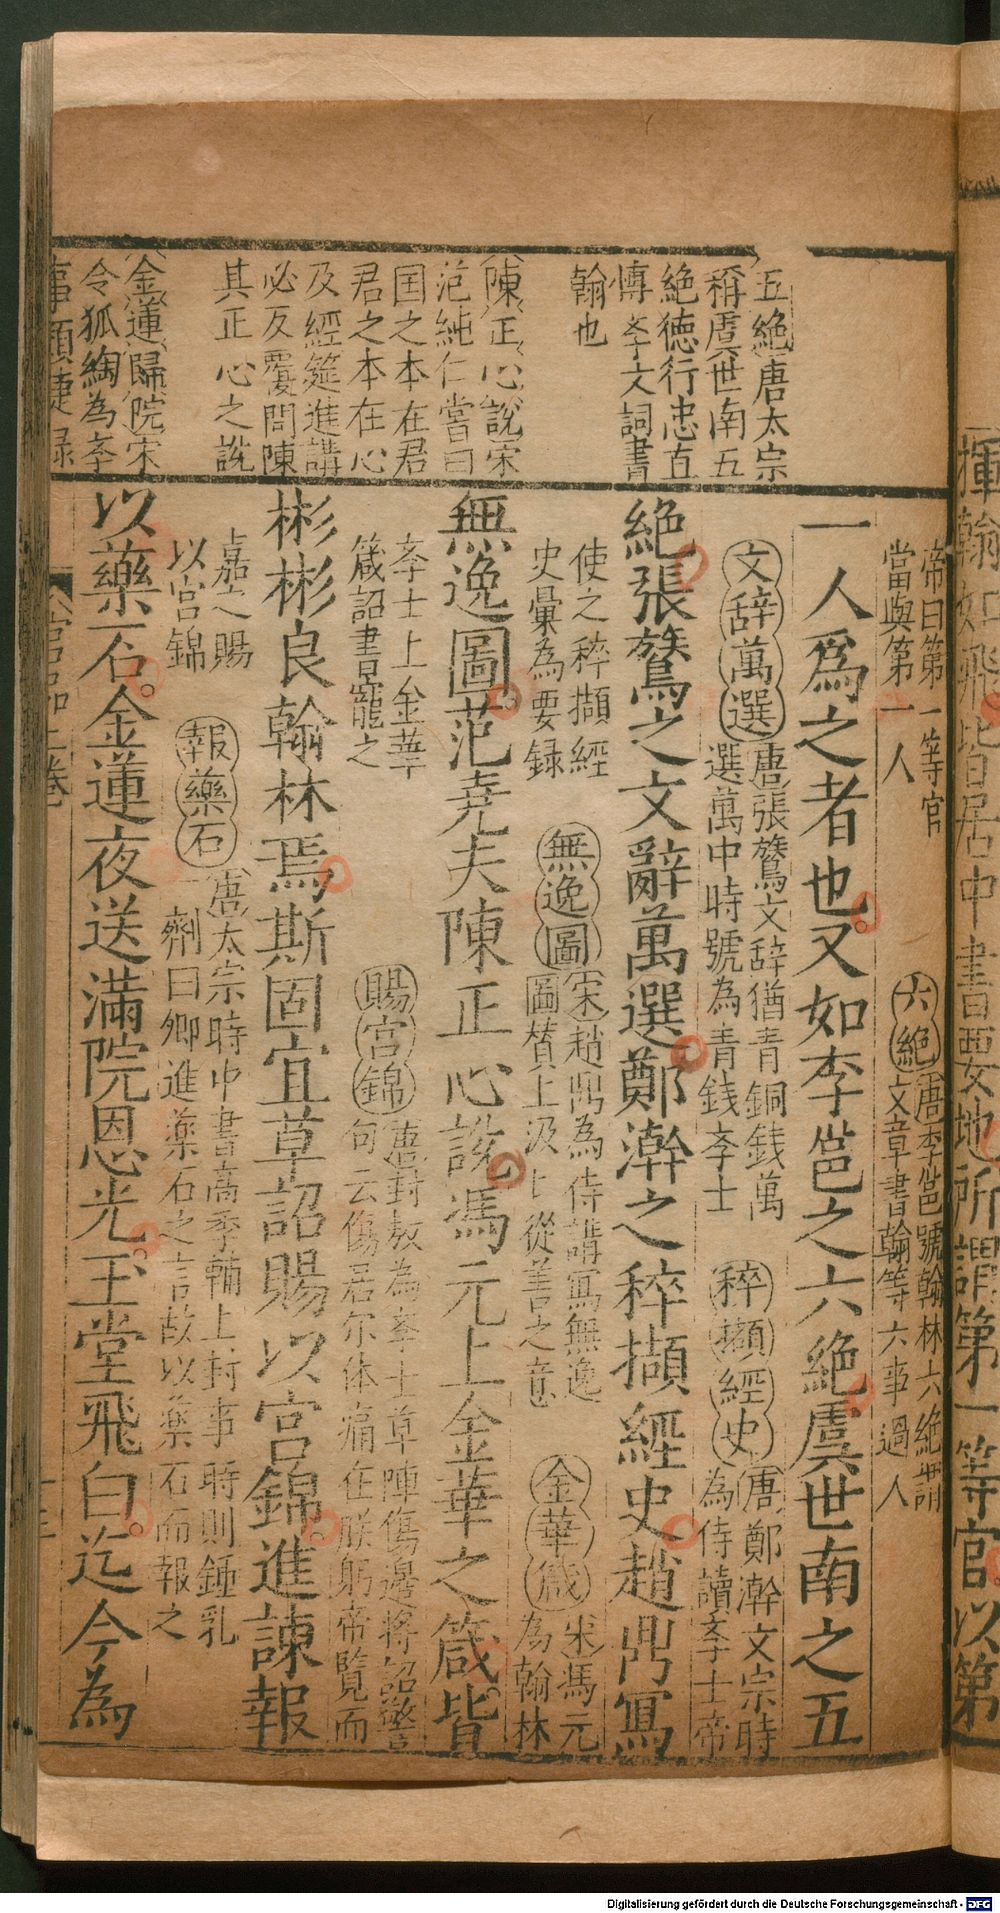 揮翰如飛皆居中書要地所謂第一等官以第
五絶唐太宗
稱虞世南五
絶徳行忠直
愽孝文詞書
翰也
陳正心說宋
范純仁嘗曰
国之本在君
君之本在心
及經筵進講
必反覆問陳
其正心之說
金蓮歸院宋
令狐綯為孝
事類捷録
帝曰第一等官
當與第一人
六絶唐李邕號翰林六絶謂
文章書翰等六事過人
一人爲之者也又如李邕之六絶虞世南之五
文辞萬選唐張鷟文辞猶青銅銭萬
選萬中時號為青銭孝士
稡擷經史唐鄭澣文宗時
為侍讀孝士帝
絶張鷟之文辭萬選鄭澣之稡擷經史趙鼎寫
使之稡擷經
史彚為要録
無逸圖宋趙鼎為侍講寫無逸
圖賛上汲上從善之意
金華箴宋馮元
為翰林
無逸圖范尭夫陳正心說馮元上金華之箴皆
孝士上金華
箴詔書寵之
賜宫錦唐封敖為孝士草陣傷邊将詔警
句云傷居尔体痛在朕躬帝覧而
彬彬良翰林焉斯固宜草詔賜以宫錦進諫報
嘉之賜
以宫錦
報藥石唐太宗時中書高季輔上封事時則鍾乳
一劑曰卿進藥石之言故以藥石而報之
以藥石金蓮夜送滿院恩光玉堂飛白迄今為
官品上卷
Digitalisierung gefördert durch die Deutsche Forschungsgemeinschaft - DFG